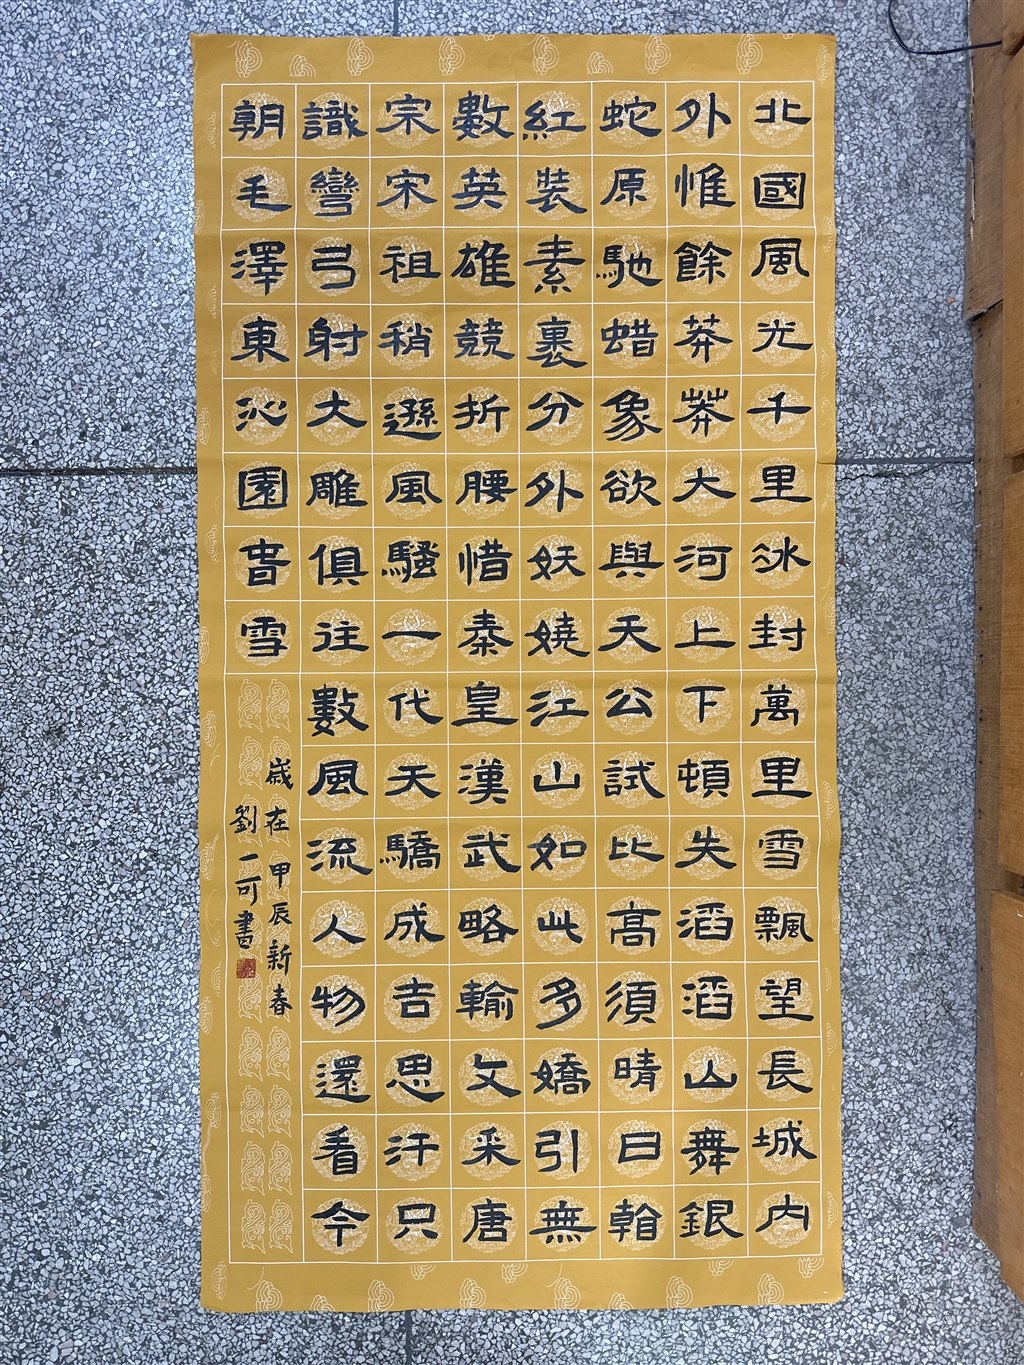 北國風光千里冰封萬里雪飄望長城内
外惟餘莽莽大河上下頓失滔滔山舞銀
蛇原馳蜡象欲與天公試比高須晴日
紅裝素裹分外妖嬈江山如此多嬌引無
數英雄競折腰惜秦皇漢武略輸文采唐
宗宋祖稍遜風騷一代天驕成吉思汗只
識彎弓射大雕俱往數風流人物還看今
朝毛澤東沁園春雪
歲在甲辰新春
劉一可書